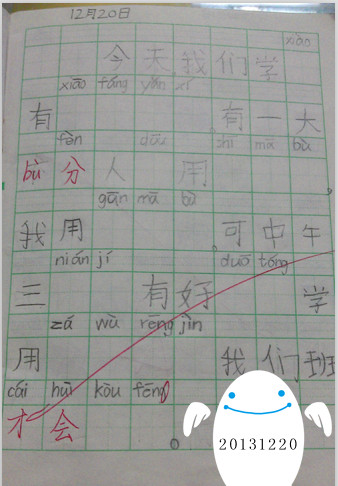 12月20日
xiào
今天我们学
xiāo fáng yǎn xí
有 有一大
bù 分人 用
gān mā bù
我用 可中午
nián jí duō tóng
三 有好 学
zá wù rēng jìn
用 我们班
cái huì kǒu fēng
才会 。
20131220